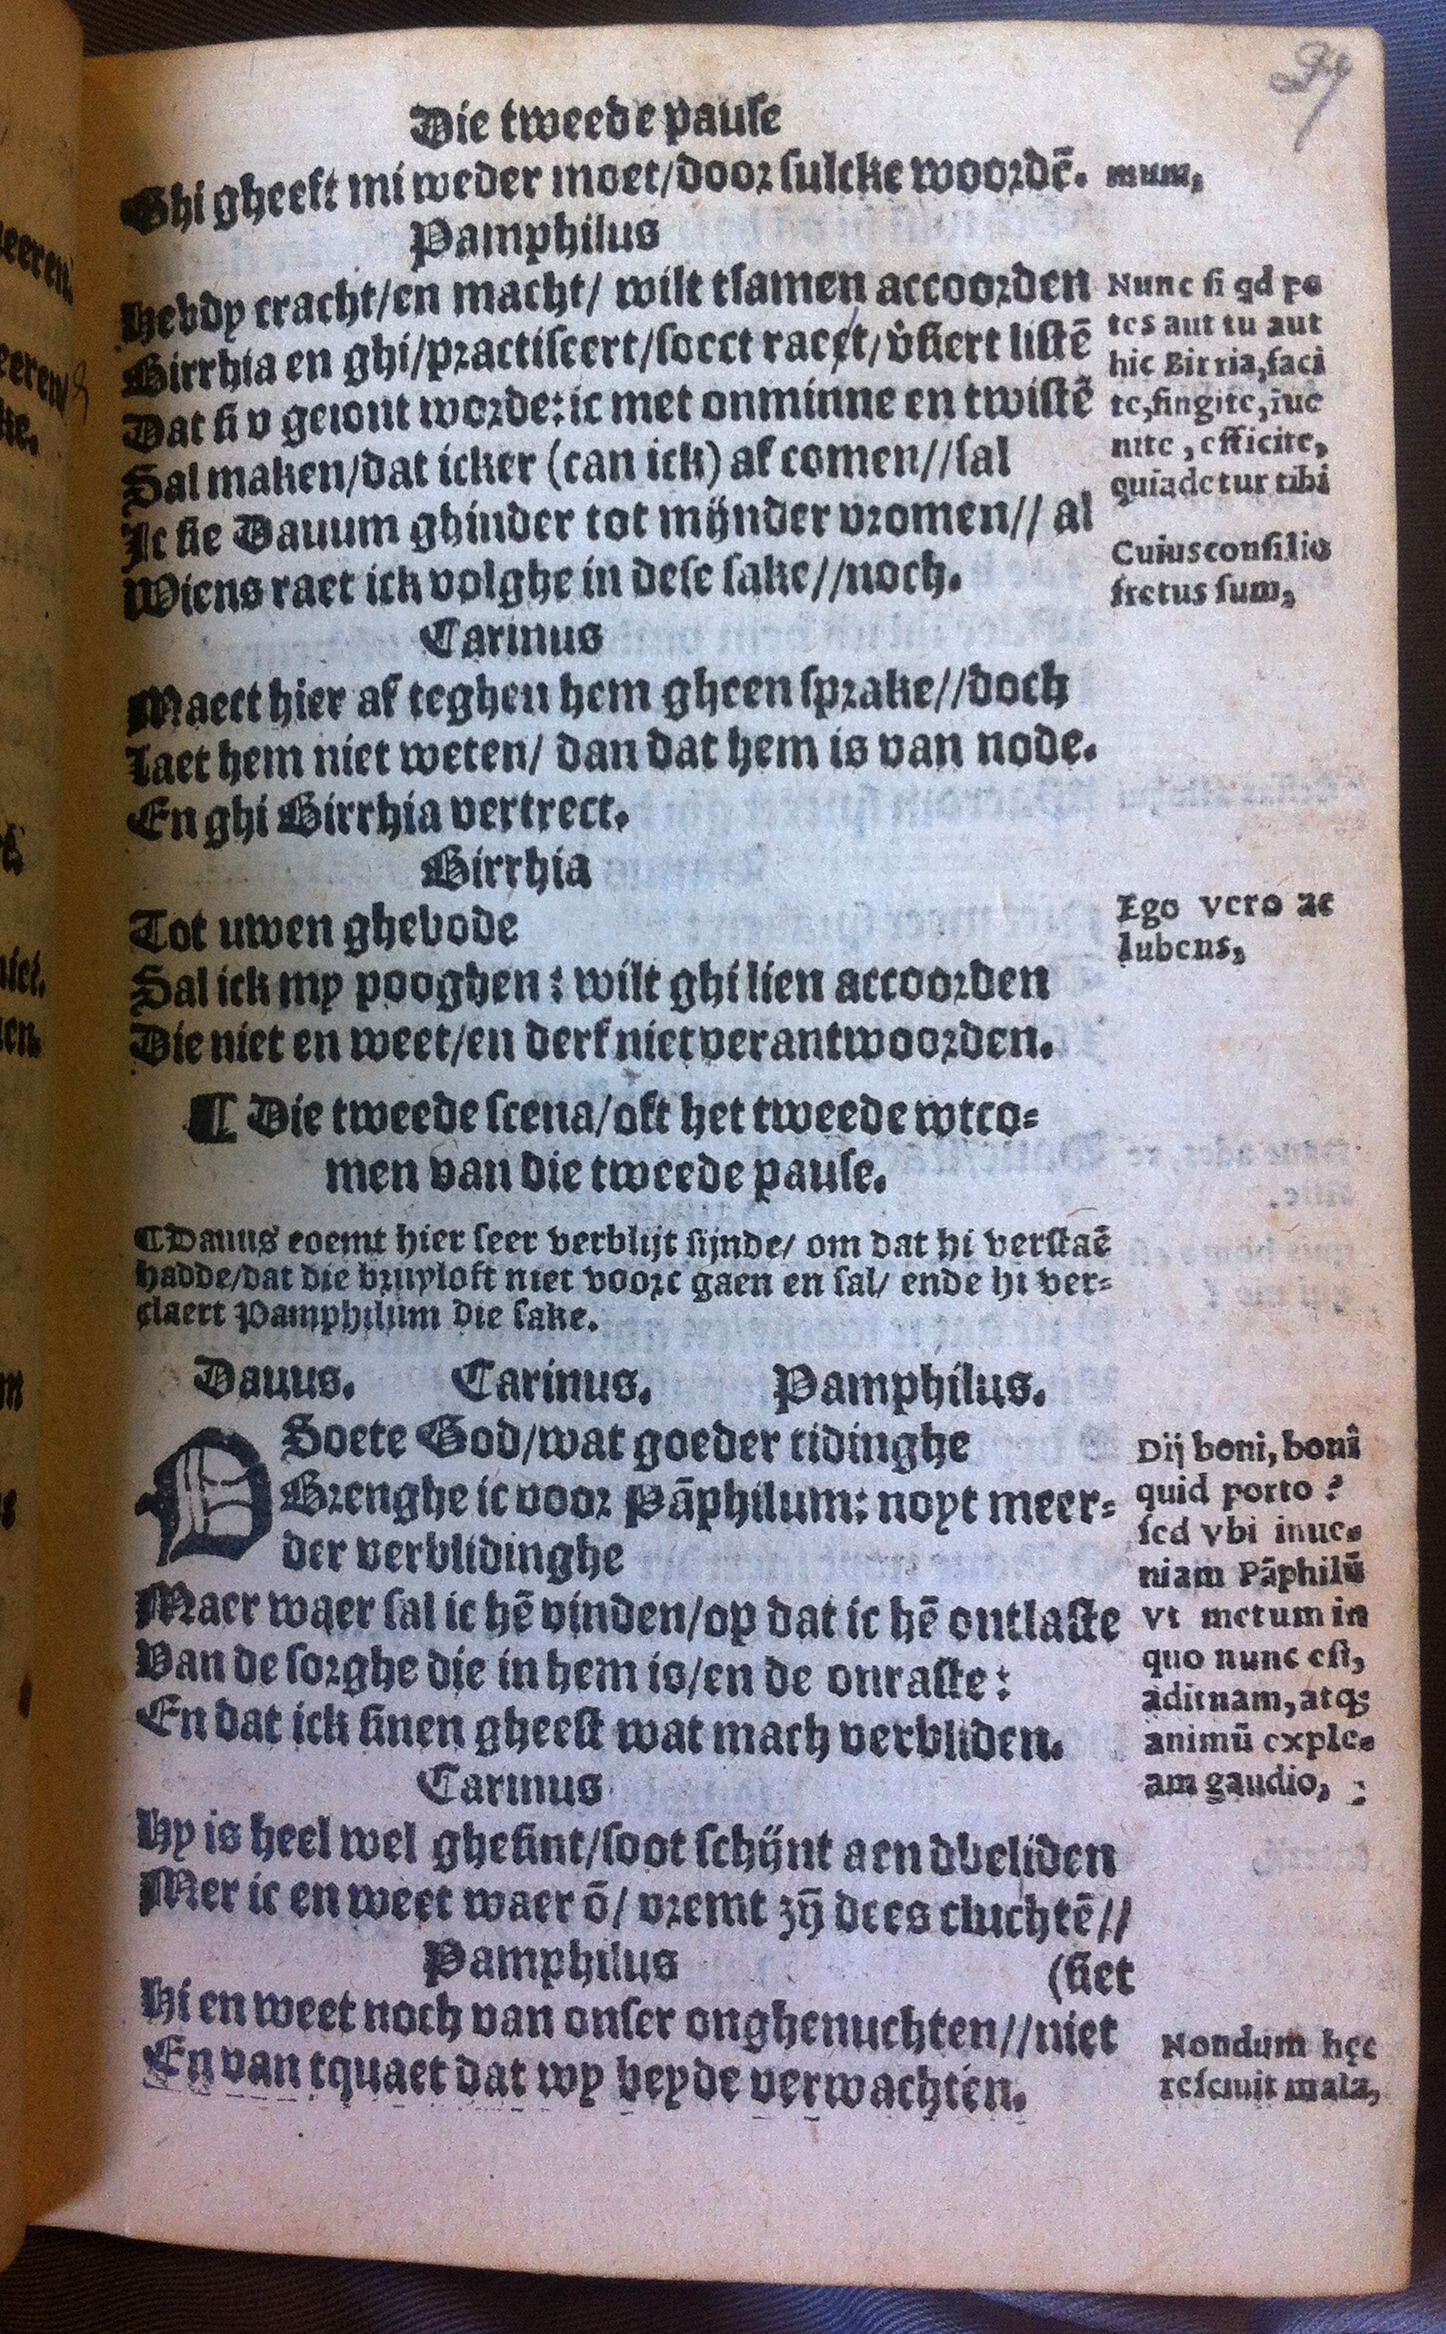 97
Die tweede pause
Ghi gheeft mi weder moet/door sulcke woordē.
Pamphilus
Hebdy cracht/en macht/ wilt tsamen accoorden
Birrhia en ghi/practiseert/soect raet/v̉siert listē
Dat si v geiont worde: ic met onminne en twistē
Sal maken/dat icker (can ick) af comen//sal
Ic sie Dauum ghinder tot mijnder vromen// al
Wiens raet ick volghe in dese sake//noch.
Carinus
Maect hier af teghen hem gheen sprake//doch
Laet hem niet weten/ dan dat hem is van node.
En ghi Birrhia vertrect.
Birrhia
Tot uwen ghebode
Sal ick my pooghen: wilt ghi lien accoorden
Die niet en weet/en derf niet verantwoorden.
¶ Die tweede scena/oft het tweede wtco=
men van die tweede pause.
¶ Dauus coemt hier seer verblijt sijnde/ om dat hi verstaē
hadde/dat die bruyloft niet voort gaen en sal/ ende hi ver=
claert Pamphilum die sake.
Dauus. Carinus. Pamphilus.
O Soete God/wat goeder tidinghe
Brenghe ic voor Pāphilum: noyt meer=
der verblidinghe
Maer waer sal ic hē vinden/op dat ic hē ontlaste
Van de sorghe die in hem is/en de onraste:
En dat ick sinen gheest wat mach verbliden.
Carinus
Hy is heel wel ghesint/soot schijnt aen dbeliden
Mer ic en weet waer ō/ vremt zȳ dees cluchtē//
Pamphilus (siet
Hi en weet noch van onser onghenuchten//niet
En van tquaet dat wy beyde verwachten.
mum,
Nunc si qd po
tes aut tu aut
hic Birria, faci
te, fingite, iue
nite, efficite,
qui a detur tibi
Cuius consilio
fretus sum,
Ego vero ac
lubens,
Dij boni, boni
quid porto?
sed vbi inue
niam Pāphilū
vt metum in
quo nunc est,
adimam, atq;
animū exple
am gaudio,
Nondum hęc
resciuit mala,